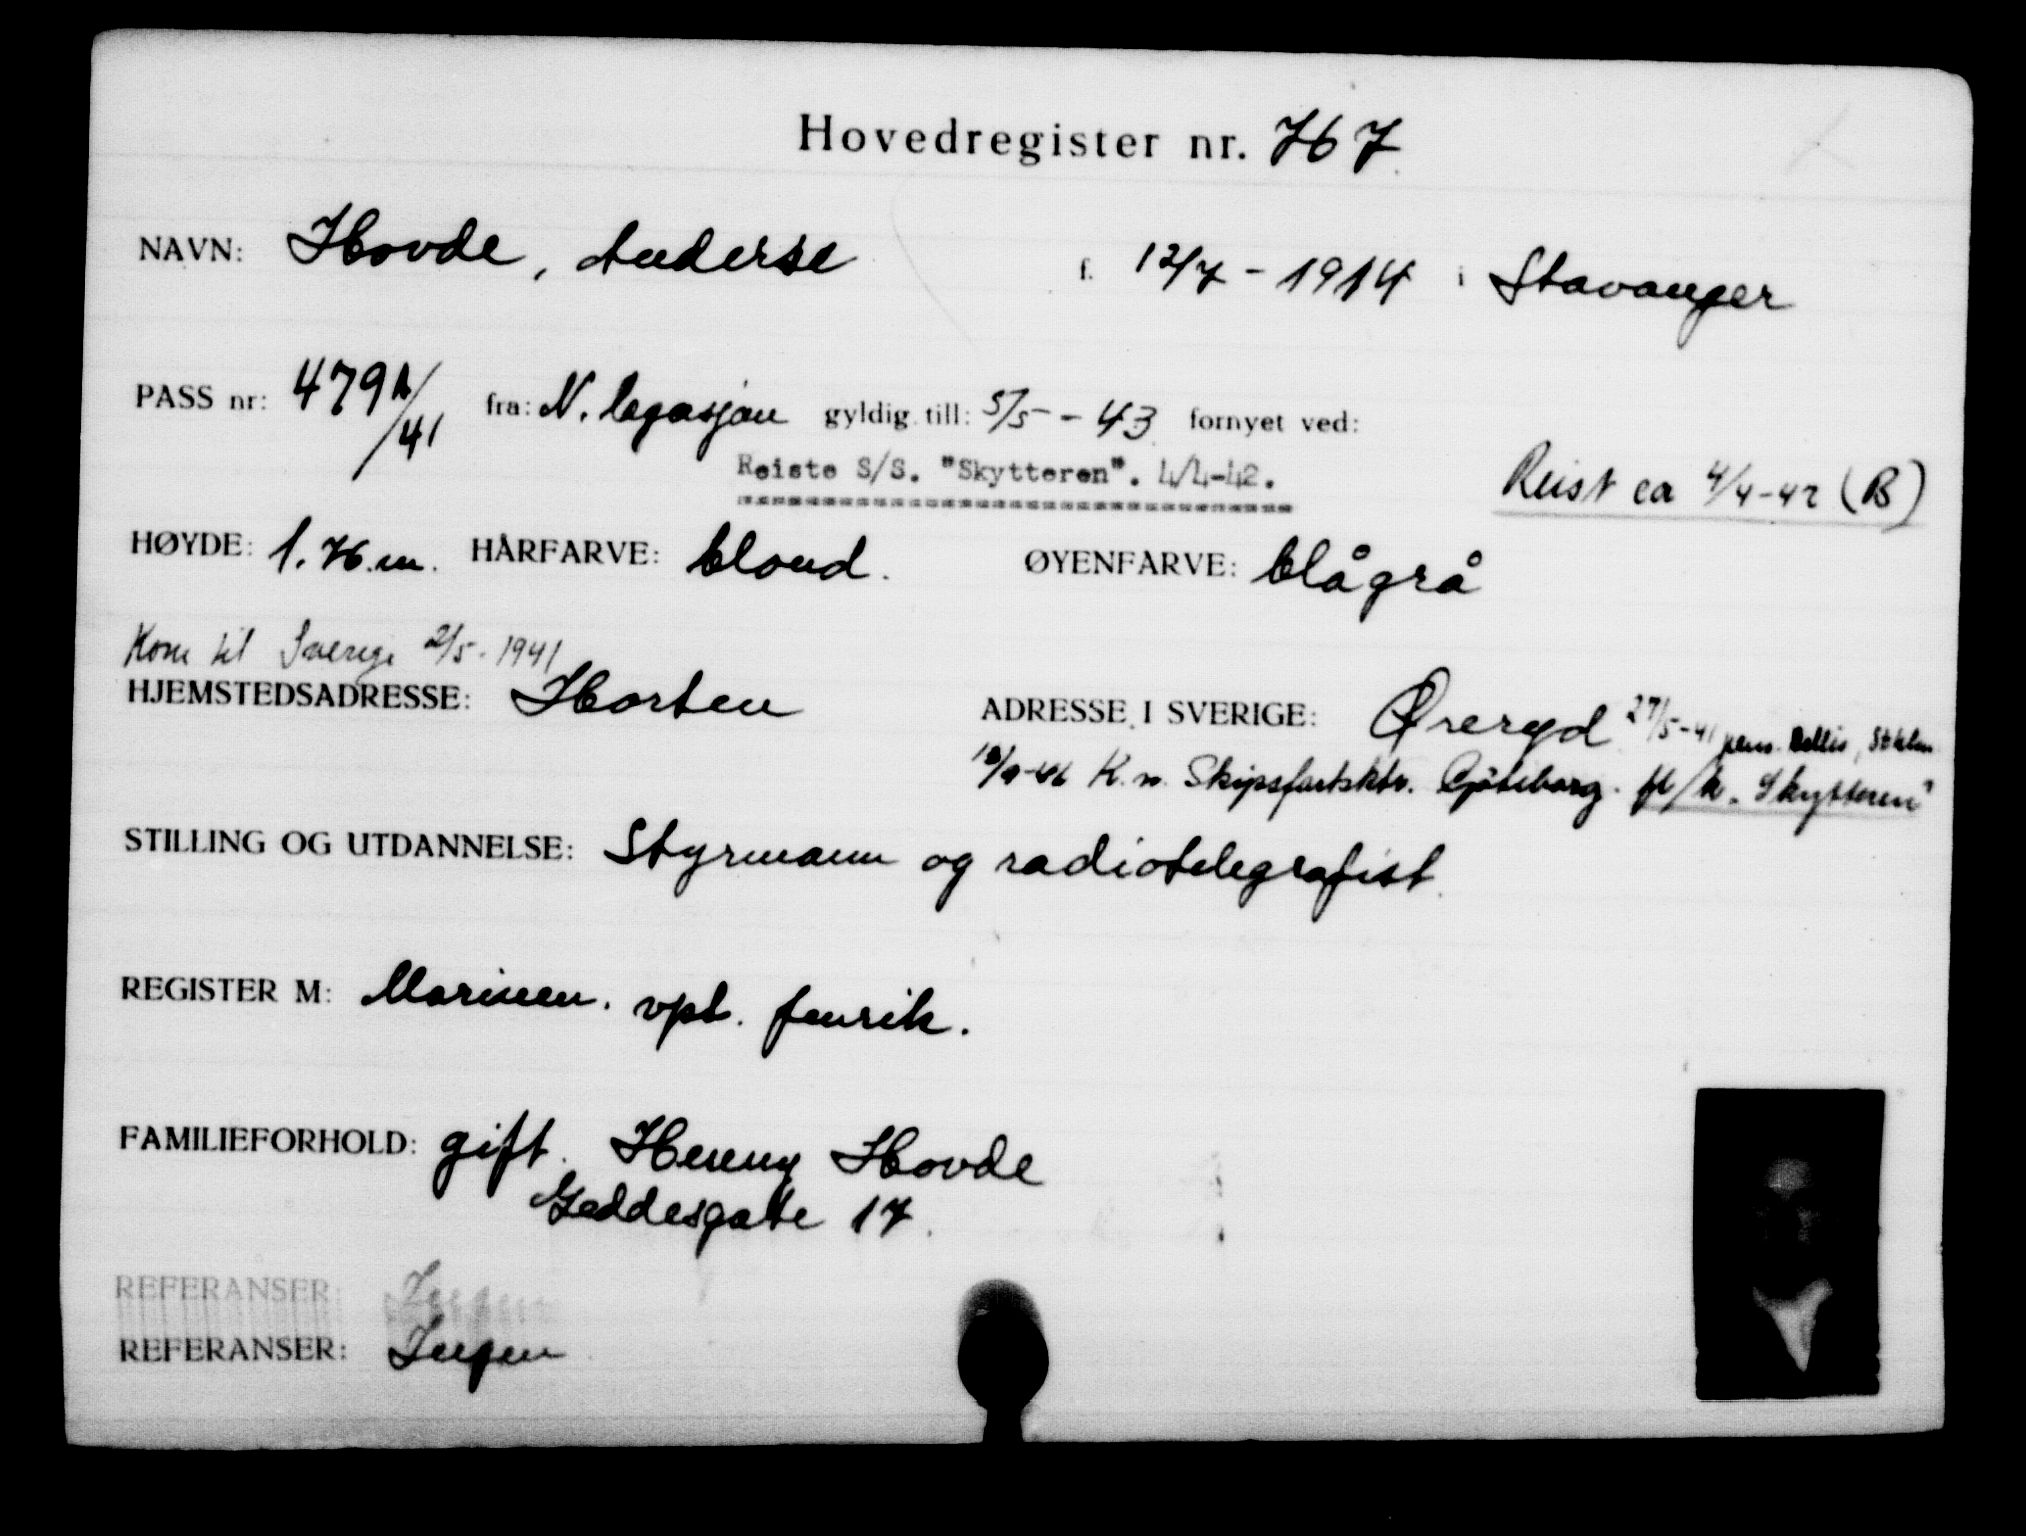 Hovedregister nr. 767
NAVN: Hovde, Anderse f. 12/7 - 1914 i Stavanger
PASS nr: 479A/41 fra: N. legasjon gyldig till: 5/5 - 43 fornyet ved:
Reiste S/S. "Skytteren". 4/4-42.
Reist ca 4/4-42 (B)
HØYDE: 1.76.m. HÅRFARVE: blond. ØYENFARVE: blågrå
Kom til Sverige 2/5-1941
HJEMSTEDSADRESSE: Horten ADRESSE I SVERIGE: Øreryd 27/5-41 pens. Stklm
K.n. Skipsfartsktr. Gøteborg. fl/k „Skytteren"
STILLING OG UTDANNELSE: Styrmann og radiotelegrafist.
REGISTER M: Marinen. vpl. fenrik.
FAMILIEFORHOLD: gift. Henny Hovde
Geddesgate 17.
REFERANSER: Ingen
REFERANSER: Ingen